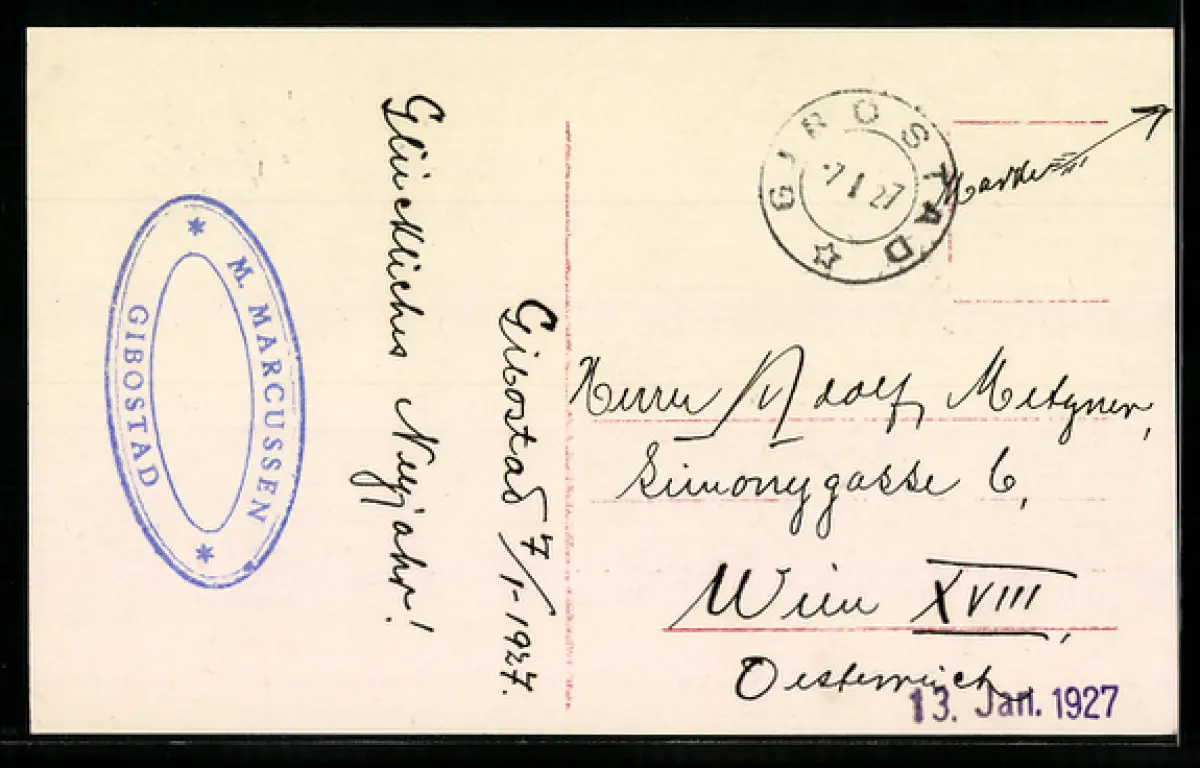 M. MARCUSSEN
GIBOSTAD
Glückliches Neujahr!
Gibostad 7/1-1927.
GIBOSTAD
7 1 27
Herrn Adolf
Simonygasse 6,
Wien XVIII,
Oesterreich
13. Jan. 1927